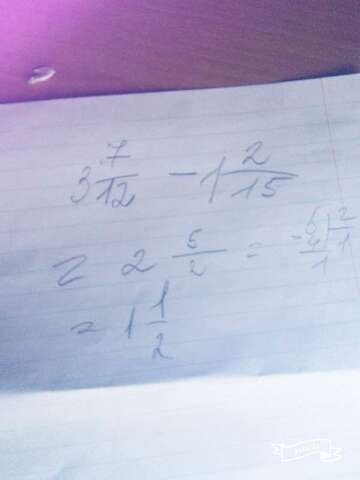 3 7/12 - 1 2/15
= 2 5/2 =
-5 | 2
4 | 1
1
= 1 1/2